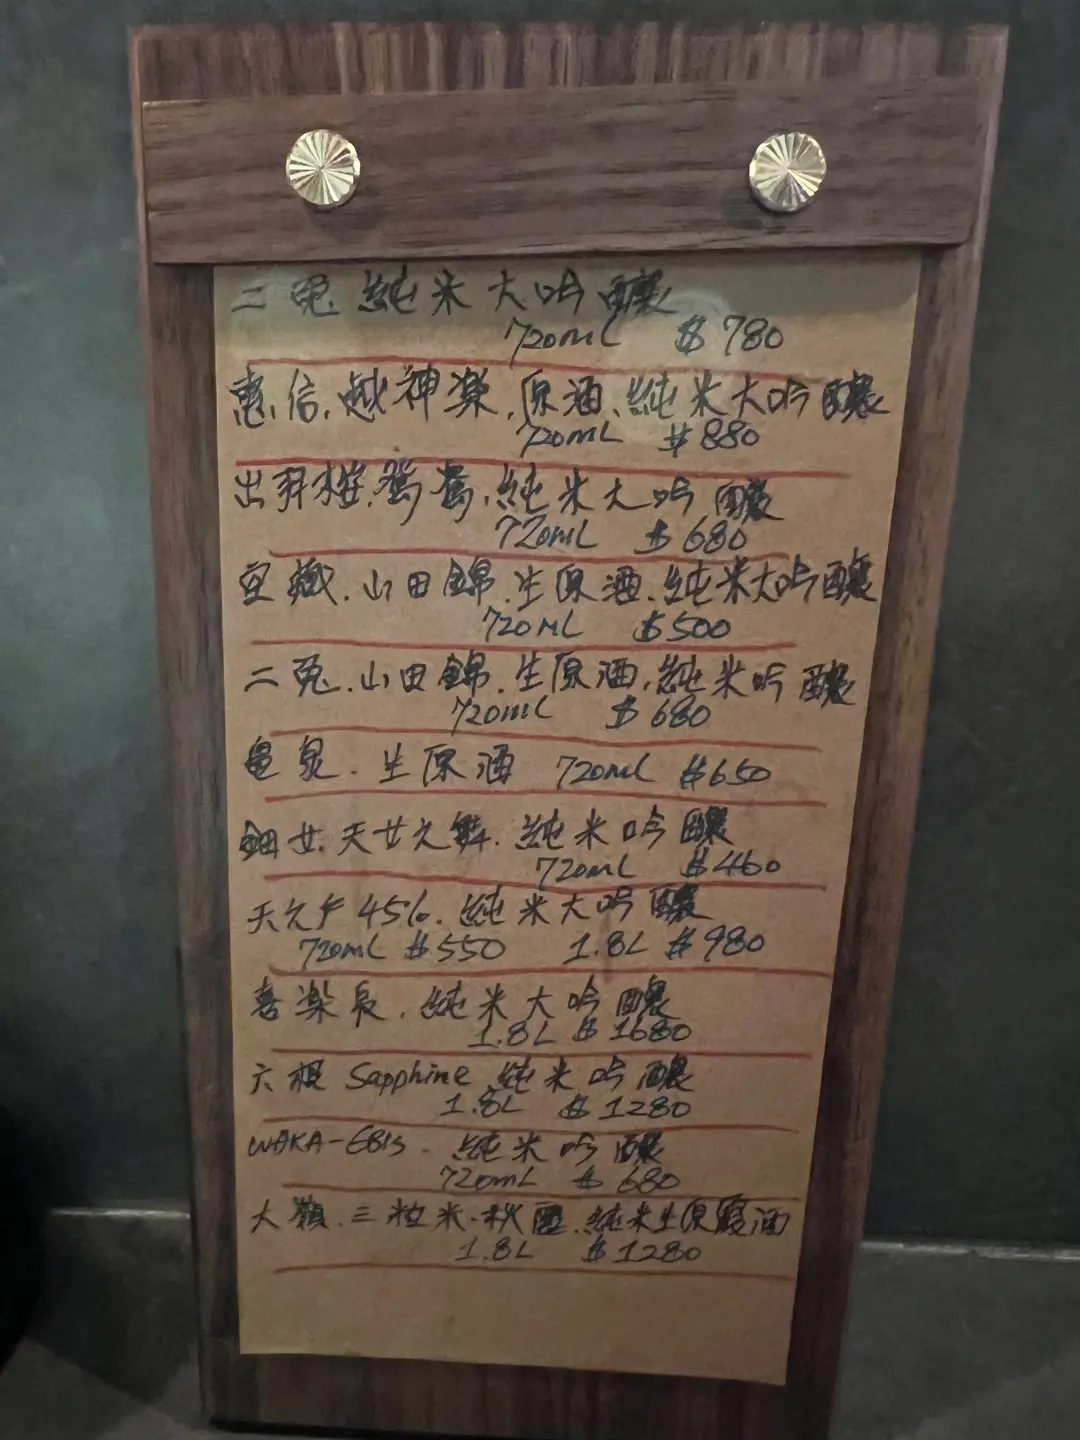 二兎 純米大吟釀
720ml $780
惠信.越神楽.原酒.純米大吟釀
720ml $880
出羽桜.鴛鴦.純米大吟釀
720ml $680
山田錦.生原酒.純米大吟釀
720ml $500
二兎.山田錦.生原酒.純米吟釀
720ml $680
亀泉.生原酒 720ml $650
鈿女.天女之舞.純米吟釀
720ml $460
45%.純米大吟釀
720ml $550 1.8L $980
喜楽長.純米大吟釀
1.8L $1680
六根 Sapphine 純米吟釀
1.8L $1280
WAKA-EBIS.純米吟釀
720ml $680
大嶺.三粒米.純米生原酒
1.8L $1280